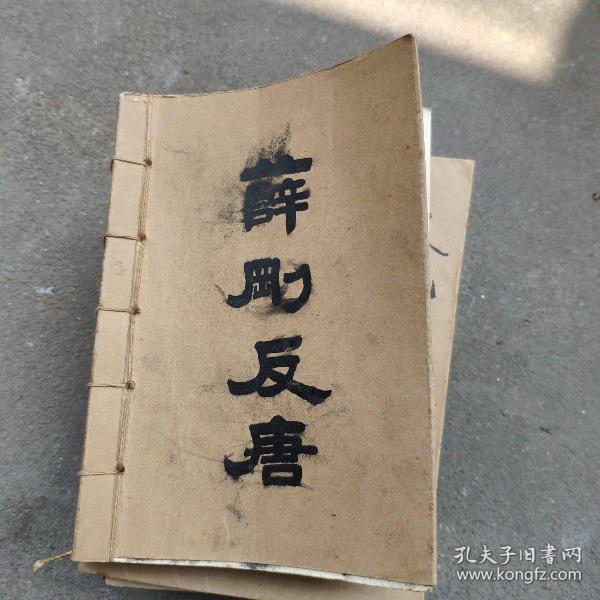 薛剛反唐
孔夫子旧書网
www.kongfz.com